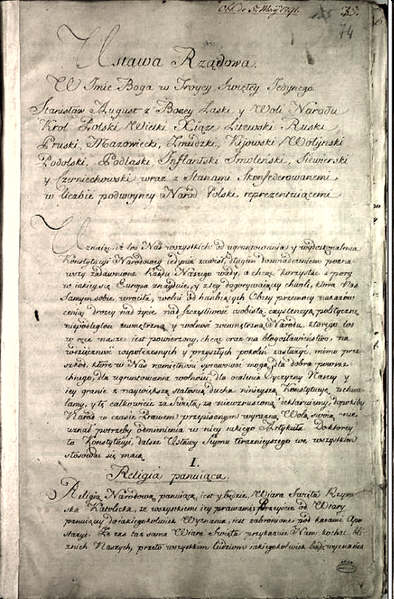 Obl. de 5. Maji 1791.
74
Ustawa Rządowa.
W Imie Boga w Troycy Swiętey Jedynego.
Stanisław August z Bożey Łaski y Woli Narodu
Krol Polski Wielki Xiąże Litewski Ruski
Pruski, Mazowiecki, Żmudzki, Kijowski Wołynski
Podolski, Podlaski Inflantski Smolenski, Siewierski
y Czerniechowski wraz z Stanami Skonfederowanemi
w liczbie podwoyney Narod Polski reprezentuiącemi
Uznaiąc iż los Nas wszystkich od ugruntowania y wydoskonalenia
Konstytucyi Narodowey iedynie zawisł, długim doswiadczeniem pozna-
wszy zadawnione Rządu Naszego wady, a chcąc korzystać z pory
w iakiey się Europa znayduie, y z tey dogorywaiącey chwili, ktora Nas
Samym sobie wrociła, wolni od hanbiących Obcey przemocy nakazow
ceniąc drożey nad życie, nad szczęśliwosć osobistą, exystencyą polityczną
niepodległosć zewnętrzną y wolnosć wewnętrzną Narodu, ktorego los
w ręce nasze iest powierzony, chcąc oraz na błogosławienstwo, na
wdzięcznosć wspołczesnych y przyszłych pokoleń zasłużyć, mimo prze-
szkod, ktore w Nas namiętnosci sprawować mogą, dla dobra powsze-
chnego, dla ugruntowania wolnosci, dla ocalenia Oyczyzny Naszey y
iey granic z naywiększą stałoscią ducha ninieyszą Konstytucyę uchwa-
lamy, y tę całkowicie za Swiętą, za niewzruszoną deklaruiemy, dopokiby
Narod w czasie Prawem przepisanym wyrazną Wolą swoią nie
uznał potrzeby odmienienia w niey iakiego Artykułu. Do ktorey
to Konstytucyi, dalsze Ustawy Seymu teraznieyszego we wszystkim
stosować się maią
I.
Religia panuiąca.
Religią Narodową panuiącą iest y będzie Wiara Swięta Rzym-
ska Katolicka, ze wszystkiemi iey prawami; Przeyscie od Wiary
panuiącey do iakiegokolwiek Wyznania, iest zabronione pod karami Apo-
stazyi. Że zaś taż sama Wiara Swięta przykazuie Nam kochać bli-
znich Naszych, przeto wszystkim ludziom iakiegokolwiek bądz wyznania